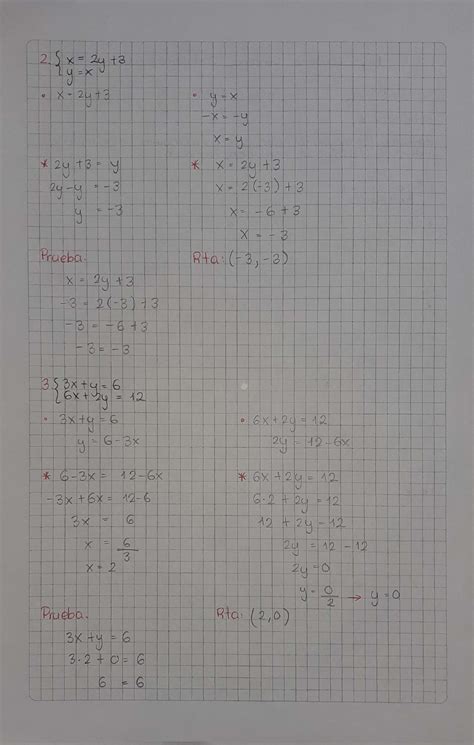 2. { x = 2y + 3
y = x
• x = 2y + 3
• y = x
-x = -y
x = y
* 2y + 3 = y
2y - y = -3
y = -3
* x = 2y + 3
x = 2(-3) + 3
x = -6 + 3
x = -3
Prueba:
Rta: (-3, -3)
x = 2y + 3
-3 = 2(-3) + 3
-3 = -6 + 3
-3 = -3
3. { 3x + y = 6
6x + 2y = 12
• 3x + y = 6
y = 6 - 3x
• 6x + 2y = 12
2y = 12 - 6x
* 6 - 3x = 12 - 6x
-3x + 6x = 12 - 6
3x = 6
x = 6/3
x = 2
* 6x + 2y = 12
6·2 + 2y = 12
12 + 2y = 12
2y = 12 - 12
2y = 0
y = 0/2 → y = 0
Prueba:
Rta: (2, 0)
3x + y = 6
3·2 + 0 = 6
6 = 6